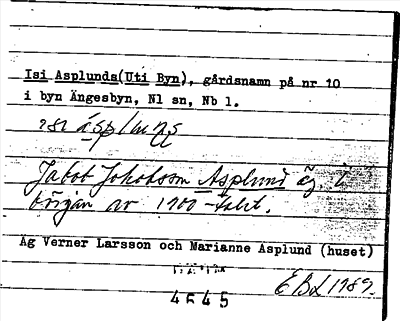 Isi Asplunds(Uti Byn), gårdsnamn på nr 10
i byn Ängesbyn, Nl sn, Nb l.
Jakob Johansson Asplund äg. i
början av 1900-talet.
Äg Verner Larsson och Marianne Asplund (huset)
4645
EBL 1989.